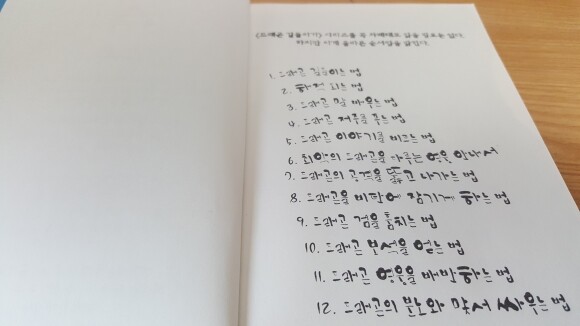 〈드래곤 길들이기〉 시리즈를 꼭 차례대로 읽을 필요는 없다.
하지만 이게 올바른 순서임을
1. 드래곤 길들이는 법
2. 해적 되는 법
3. 드래곤 말 배우는 법
4. 드래곤 저주를 푸는 법
5. 드래곤 이야기를 비트는 법
6. 최악의 드래곤을 다루는 영웅 안내서
7. 드래곤의 공격을 뚫고 나가는 법
8. 드래곤을 비탄에 잠기게 하는 법
9. 드래곤 검을 훔치는 법
10. 드래곤 보석을 얻는 법
11. 드래곤 영웅을 배반하는 법
12. 드래곤의 분노와 맞서 싸우는 법